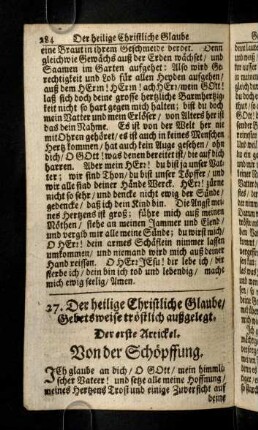 284 Der heilige Christliche Glaube
eine Braut in ihrem Geschmeide berdet. Denn
gleichwie Gewächs auß der Erden wächset / und
Saamen im Garten aufgehet: Also wird Ge-
rechtigkeit und Lob für allen Heyden aufgehen /
auß dem HErrn! HErrn! ach HErr / mein GOtt!
laß sich doch deine grosse hertzliche Barmhertzig-
keit nicht so hart gegen mich halten; bist du doch
mein Vatter und mein Erlöser / von Alters her ist
das dein Nahme. Es ist von der Welt her nie
mit Ohren gehöret / es ist auch in keines Menschen
Hertz kommen / hat auch kein Auge gesehen / ohn
dich / O GOtt! was denen bereitet ist / die auf dich
harren. Aber mein HErr! du bist ja unser Vat-
ter; wir sind Thon / du bist unser Töpffer / und
wir alle sind deiner Hände Werck. HErr! zürne
nicht so sehr / und dencke nicht ewig der Sünde /
gedencke / daß ich dein Kind bin. Die Angst mei-
nes Hertzens ist groß; führe mich auß meinen
Nöthen / siehe an meinen Jammer und Elend /
und vergib mir alle meine Sünde; du wirst mich /
O HErr! dein armes Schäflein nimmer lassen
umkommen / und niemand wird mich auß deiner
Hand reissen. O HErr JEsu! dir lebe ich / dir
sterbe ich / dein bin ich tod und lebendig / mache
mich ewig seelig / Amen.
27. Der heilige Christliche Glaube /
Gebetsweise tröstlich außgelegt.
Der erste Artickel.
Von der Schöpffung.
ICh glaube an dich / O GOtt / mein himmli-
scher Vatter! und setze alle meine Hoffnung /
meines Hertzens Trost und einige Zuversicht auf
deine